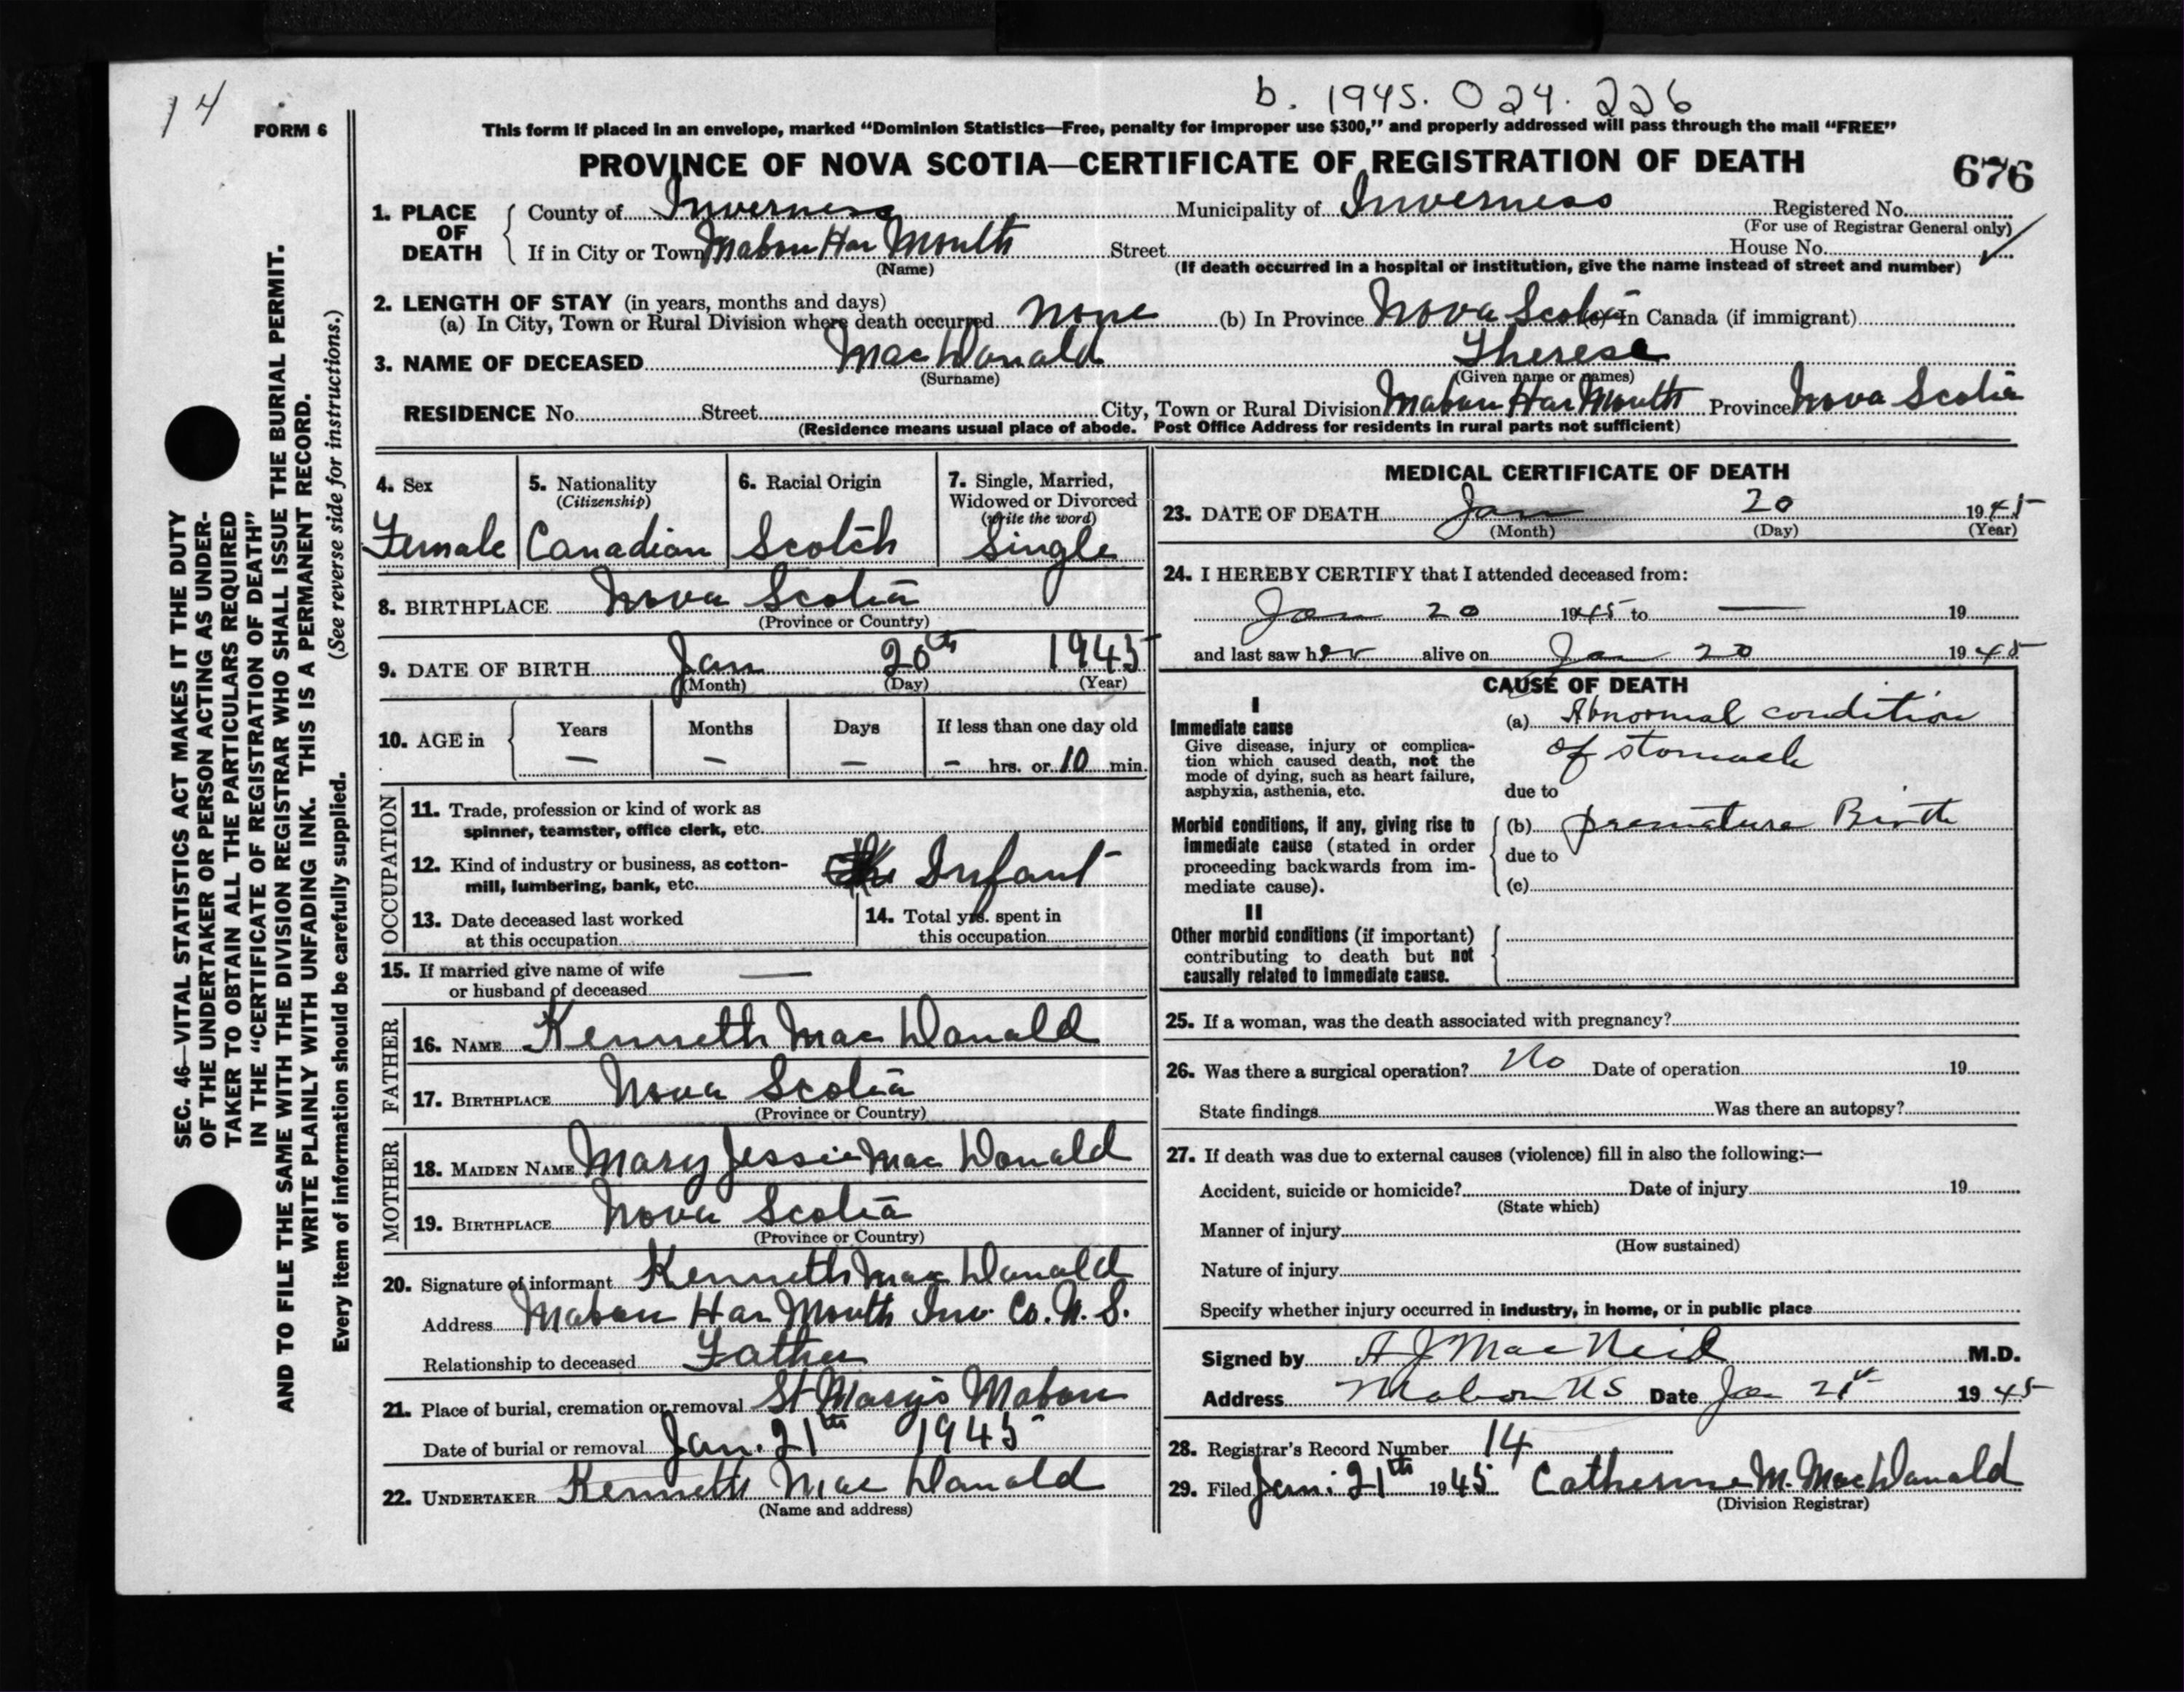 14
b. 1945. 024. 226
FORM 6
This form if placed in an envelope, marked “Dominion Statistics—Free, penalty for improper use $300,” and properly addressed will pass through the mail “FREE”
PROVINCE OF NOVA SCOTIA—CERTIFICATE OF REGISTRATION OF DEATH
676
1. PLACE OF DEATH
County of Inverness Municipality of Inverness Registered No.
(For use of Registrar General only)
If in City or Town Mabou Har Mouth Street House No.
(Name)
(If death occurred in a hospital or institution, give the name instead of street and number)
2. LENGTH OF STAY (in years, months and days)
(a) In City, Town or Rural Division where death occurred none (b) In Province Nova Scotia (c) In Canada (if immigrant)
3. NAME OF DECEASED MacDonald Therese
(Surname) (Given name or names)
RESIDENCE No. Street City, Town or Rural Division Mabou Har Mouth Province Nova Scotia
(Residence means usual place of abode. Post Office Address for residents in rural parts not sufficient)
SEC. 46—VITAL STATISTICS ACT MAKES IT THE DUTY
OF THE UNDERTAKER OR PERSON ACTING AS UNDER-
TAKER TO OBTAIN ALL THE PARTICULARS REQUIRED
IN THE “CERTIFICATE OF REGISTRATION OF DEATH”
AND TO FILE THE SAME WITH THE DIVISION REGISTRAR WHO SHALL ISSUE THE BURIAL PERMIT.
WRITE PLAINLY WITH UNFADING INK. THIS IS A PERMANENT RECORD.
Every item of information should be carefully supplied. (See reverse side for instructions.)
4. Sex
Female
5. Nationality
(Citizenship)
Canadian
6. Racial Origin
Scotch
7. Single, Married,
Widowed or Divorced
(write the word)
Single
8. BIRTHPLACE Nova Scotia
(Province or Country)
9. DATE OF BIRTH Jan 20th 1945
(Month) (Day) (Year)
10. AGE in
Years Months Days If less than one day old
— — — — hrs. or 10 min.
OCCUPATION
11. Trade, profession or kind of work as
spinner, teamster, office clerk, etc.
12. Kind of industry or business, as cotton-
mill, lumbering, bank, etc. Infant
13. Date deceased last worked
at this occupation
14. Total yrs. spent in
this occupation
15. If married give name of wife —
or husband of deceased
FATHER
16. NAME Kenneth MacDonald
17. BIRTHPLACE Nova Scotia
(Province or Country)
MOTHER
18. MAIDEN NAME Mary Jessie MacDonald
19. BIRTHPLACE Nova Scotia
(Province or Country)
20. Signature of informant Kenneth MacDonald
Address Mabou Har Mouth Inv. Co. N. S.
Relationship to deceased Father
21. Place of burial, cremation or removal St Mary's Mabou
Date of burial or removal Jan. 21th 1945
22. UNDERTAKER Kenneth MacDonald
(Name and address)
MEDICAL CERTIFICATE OF DEATH
23. DATE OF DEATH Jan 20 1945
(Month) (Day) (Year)
24. I HEREBY CERTIFY that I attended deceased from:
Jan 20 1945 to — 19
and last saw her alive on Jan 20 1945
CAUSE OF DEATH
I
Immediate cause
Give disease, injury or complica-
tion which caused death, not the
mode of dying, such as heart failure,
asphyxia, asthenia, etc.
(a) Abnormal condition
of stomach
due to
Morbid conditions, if any, giving rise to
immediate cause (stated in order
proceeding backwards from im-
mediate cause).
(b) premature Birth
due to
(c)
II
Other morbid conditions (if important)
contributing to death but not
causally related to immediate cause.
25. If a woman, was the death associated with pregnancy?
26. Was there a surgical operation? No Date of operation 19
State findings Was there an autopsy?
27. If death was due to external causes (violence) fill in also the following:—
Accident, suicide or homicide? Date of injury 19
(State which)
Manner of injury
(How sustained)
Nature of injury
Specify whether injury occurred in industry, in home, or in public place
Signed by A J MacNeil M.D.
Address Mabou NS Date Jan 21st 1945
28. Registrar's Record Number 14
29. Filed Jan. 21th 1945 Catherine M. MacDonald
(Division Registrar)